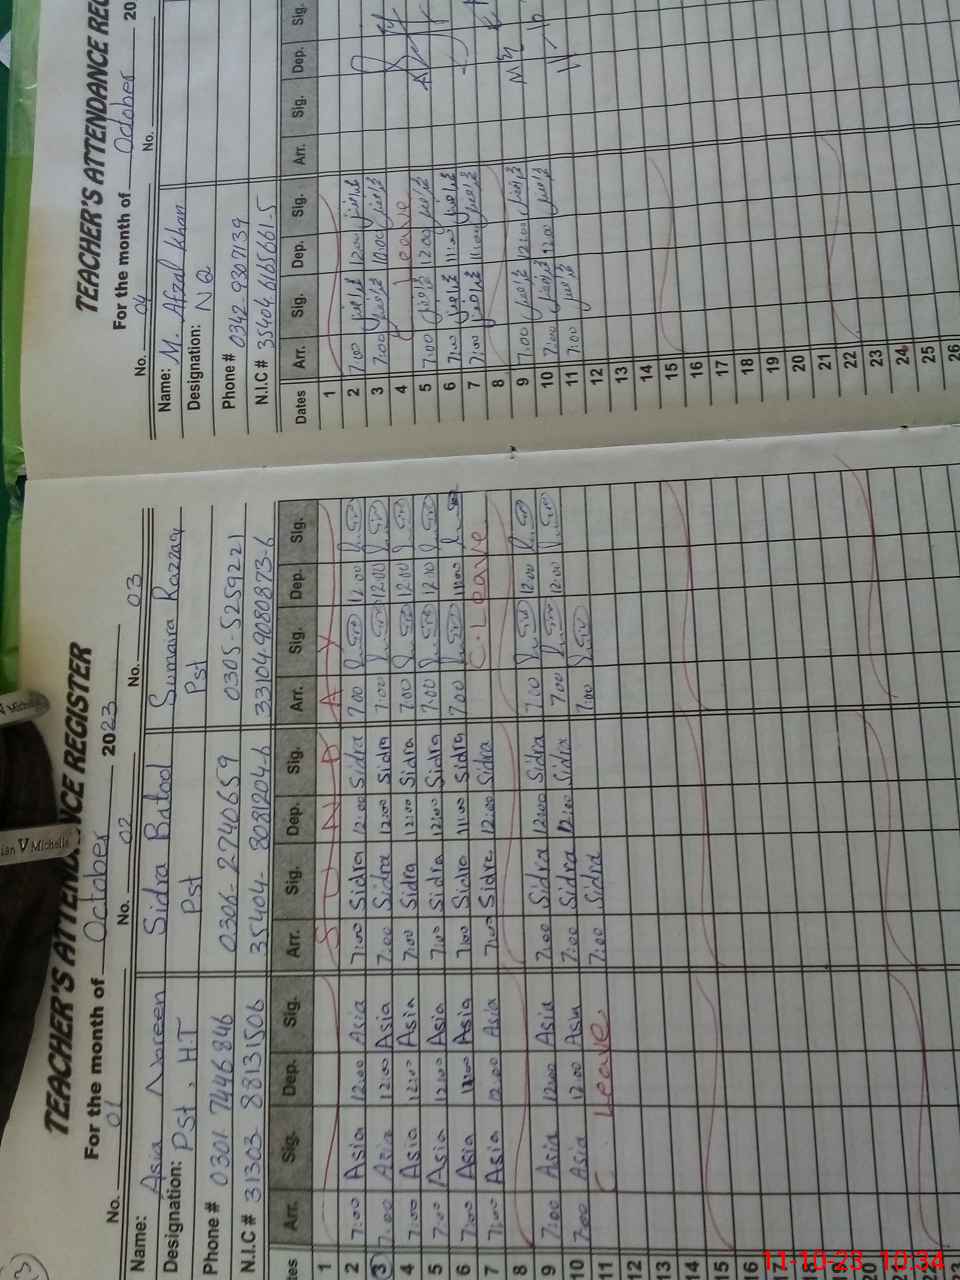 TEACHER'S ATTENDANCE REGISTER
For the month of October 2023
No. 01 No. 02 No. 03
Name: Asia Nareen Sidra Batool Sumaira Razzaq
Designation: Pst, H.T Pst Pst
Phone # 0301 7446846 0306-2740659 0305-5259221
N.I.C # 31303 88131506 35404- 8081204-6 33104-9080873-6
tes Arr. Sig. Dep. Sig. Arr. Sig. Dep. Sig. Arr. Sig. Dep. Sig.
1 S U N D A Y
2 7:00 Asia 12:00 Asia 7:00 Sidra 12:00 Sidra 7:00 12:00
3 7:00 Asia 12:00 Asia 7:00 Sidra 12:00 Sidra 7:00 12:00
4 7:00 Asia 12:00 Asia 7:00 Sidra 12:00 Sidra 7:00 12:00
5 7:00 Asia 12:00 Asia 7:00 Sidra 12:00 Sidra 7:00 12:10
6 7:00 Asia 12:00 Asia 7:00 Sidra 11:00 Sidra 7:00 11:00
7 7:00 Asia 12:00 Asia 7:00 Sidra 12:00 Sidra C. Leave
8
9 7:00 Asia 12:00 Asia 7:00 Sidra 12:00 Sidra 7:00 12:00
10 7:00 Asia 12:00 Asia 7:00 Sidra 12:00 Sidra 7:00 12:00
11 C Leave 7:00 Sidra 7:00
12
13
14
15
16
17
18
19
20
21
22
TEACHER'S ATTENDANCE REG
For the month of October 20
No. 04 No.
Name: M. Afzal Khan
Designation: N Q
Phone # 0342-9307139
N.I.C # 35404 6165661-5
Dates Arr. Sig. Dep. Sig. Arr. Sig. Dep. Sig.
1
2 7:00 12:00
3 7:00 12:00
4 C Leave
5 7:00 12:00
6 7:00 11:00
7 7:00 11:00
8
9 7:00 12:00
10 7:00 12:00
11 7:00
12
13
14
15
16
17
18
19
20
21
22
23
24
25
26
11-10-23 10:34